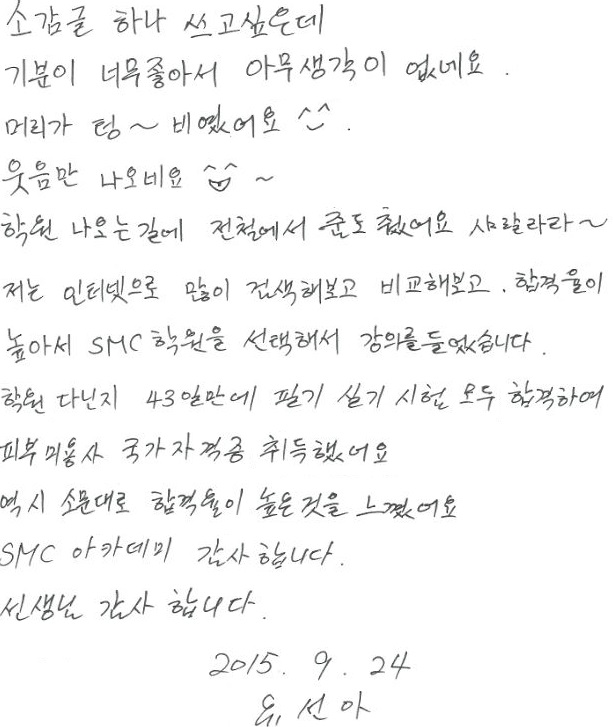 소감글 하나 쓰고싶은데
기분이 너무좋아서 아무생각이 없네요.
머리가 텅~ 비였어요 ^^.
웃음만 나오네요 ^^ ~
학원 나오는길에 전철에서 춤도 췄어요 샤랄라라~
저는 인터넷으로 많이 검색해보고 비교해보고. 합격율이
높아서 SMC학원을 선택해서 강의를들었습니다.
학원 다닌지 43일만에 필기 실기 시험 모두 합격하여
피부미용사 국가자격증 취득했어요
역시 소문대로 합격율이 높은것을 느꼈어요
SMC 아카데미 감사합니다.
선생님 감사합니다.
2015. 9. 24
유선아